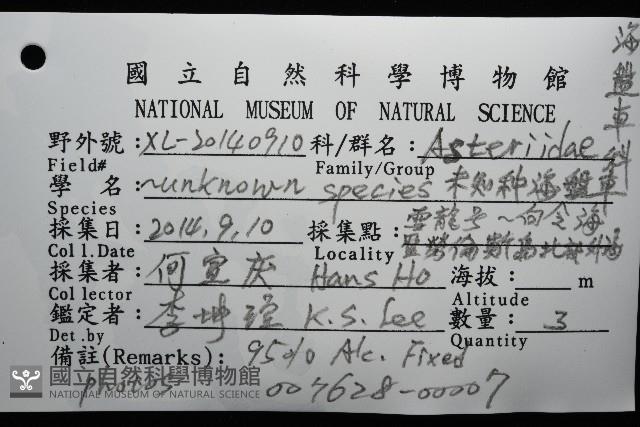 海盤車科
國立自然科學博物館
NATIONAL MUSEUM OF NATURAL SCIENCE
野外號：XL-20140910 科/群名：Asteriidae
Field# Family/Group
學 名：~unknown species 未知種海盤車
Species
採集日：2014.9.10 採集點：雲龍号~向令海
Coll.Date Locality 亞勞倫斯島北部外海
採集者：何宣庆 Hans Ho 海拔： m
Collector Altitude
鑑定者：李坤瑄 K.S. Lee 數量：3
Det.by Quantity
備註(Remarks)：95% Alc. Fixed
photos 007628-00007
國立自然科學博物館
NATIONAL MUSEUM OF NATURAL SCIENCE